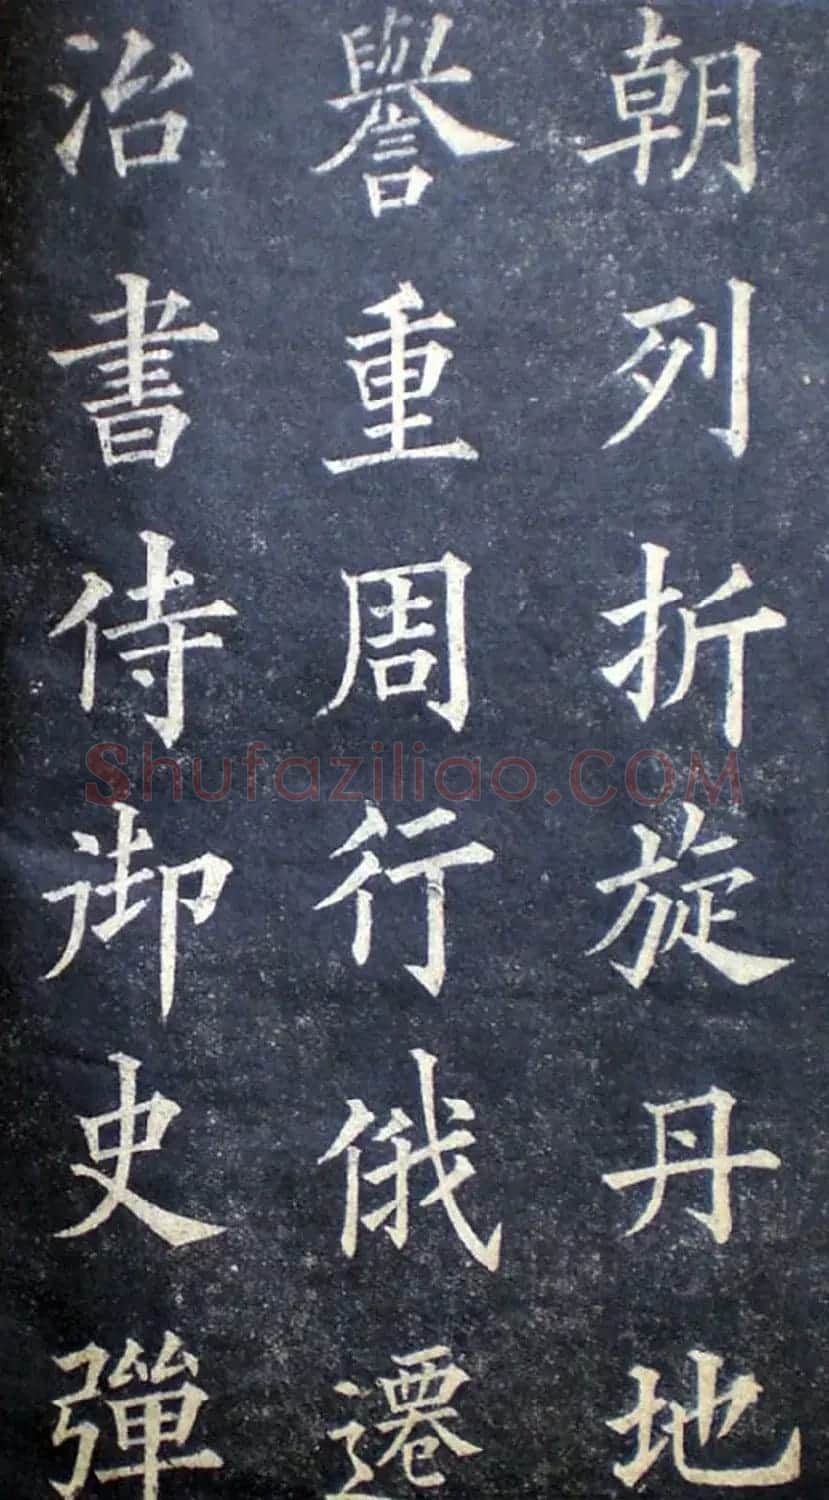 朝列折旋丹地
譽重周行俄遷
治書侍御史彈
Shufaziliao.COM